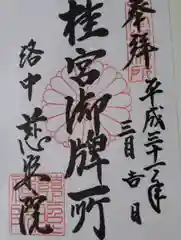 奉拝
平成三十一年
三月吉日
桂宮御牌所
洛中
慈照院